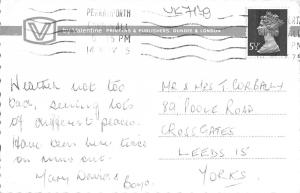 VK7RO
by Valentine PRINTERS & PUBLISHERS, DUNDEE & LONDON
5½
Weather not too
bad, seeing lots
of different places.
Have been here twice
on
Mary Dennis &
Boys.
MR & MRS T. CORBALLY
89 POOLE ROAD
CROSSGATES
LEEDS 15
YORKS.